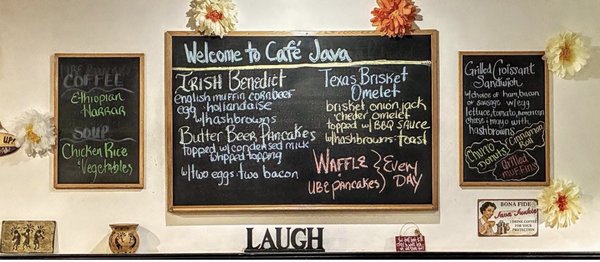 COFFEE
Ethiopian
Harrar
SOUP
Chicken Rice
Vegetables
Welcome to Café Java
Irish Benedict
english muffin corn beef
egg hollandaise
w/hashbrowns
Butter Beer Pancakes
topped w/condensed milk
whipped topping
w/two eggs & two bacon
Texas Brisket
Omelet
brisket onion jack
cheder omelet
topped w/BBQ sauce
w/hashbrowns & toast
Waffle & Every
Ube pancakes Day
Grilled Croissant
Sandwich
w/choice of ham bacon
or sausage w/egg
lettuce, tomato, american
cheese & mayo with
hashbrowns
Churro
Donuts
Cinnamon
Roll
Grilled
Muffin
UP!
LAUGH
BONA FIDE
Java Junkie
I DRINK COFFEE
FOR YOUR
PROTECTION